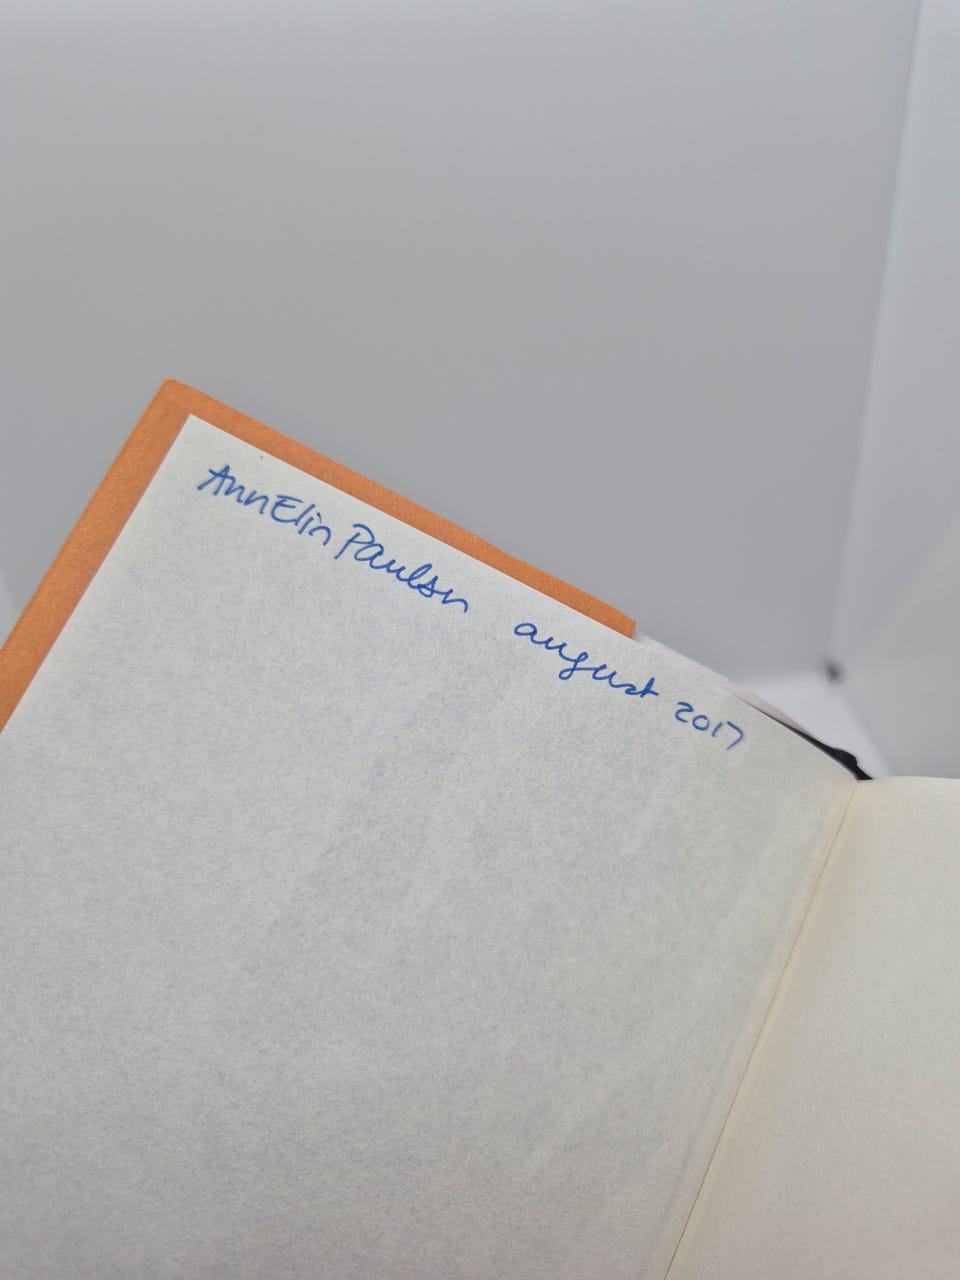 AnnElin Paulsen august 2017